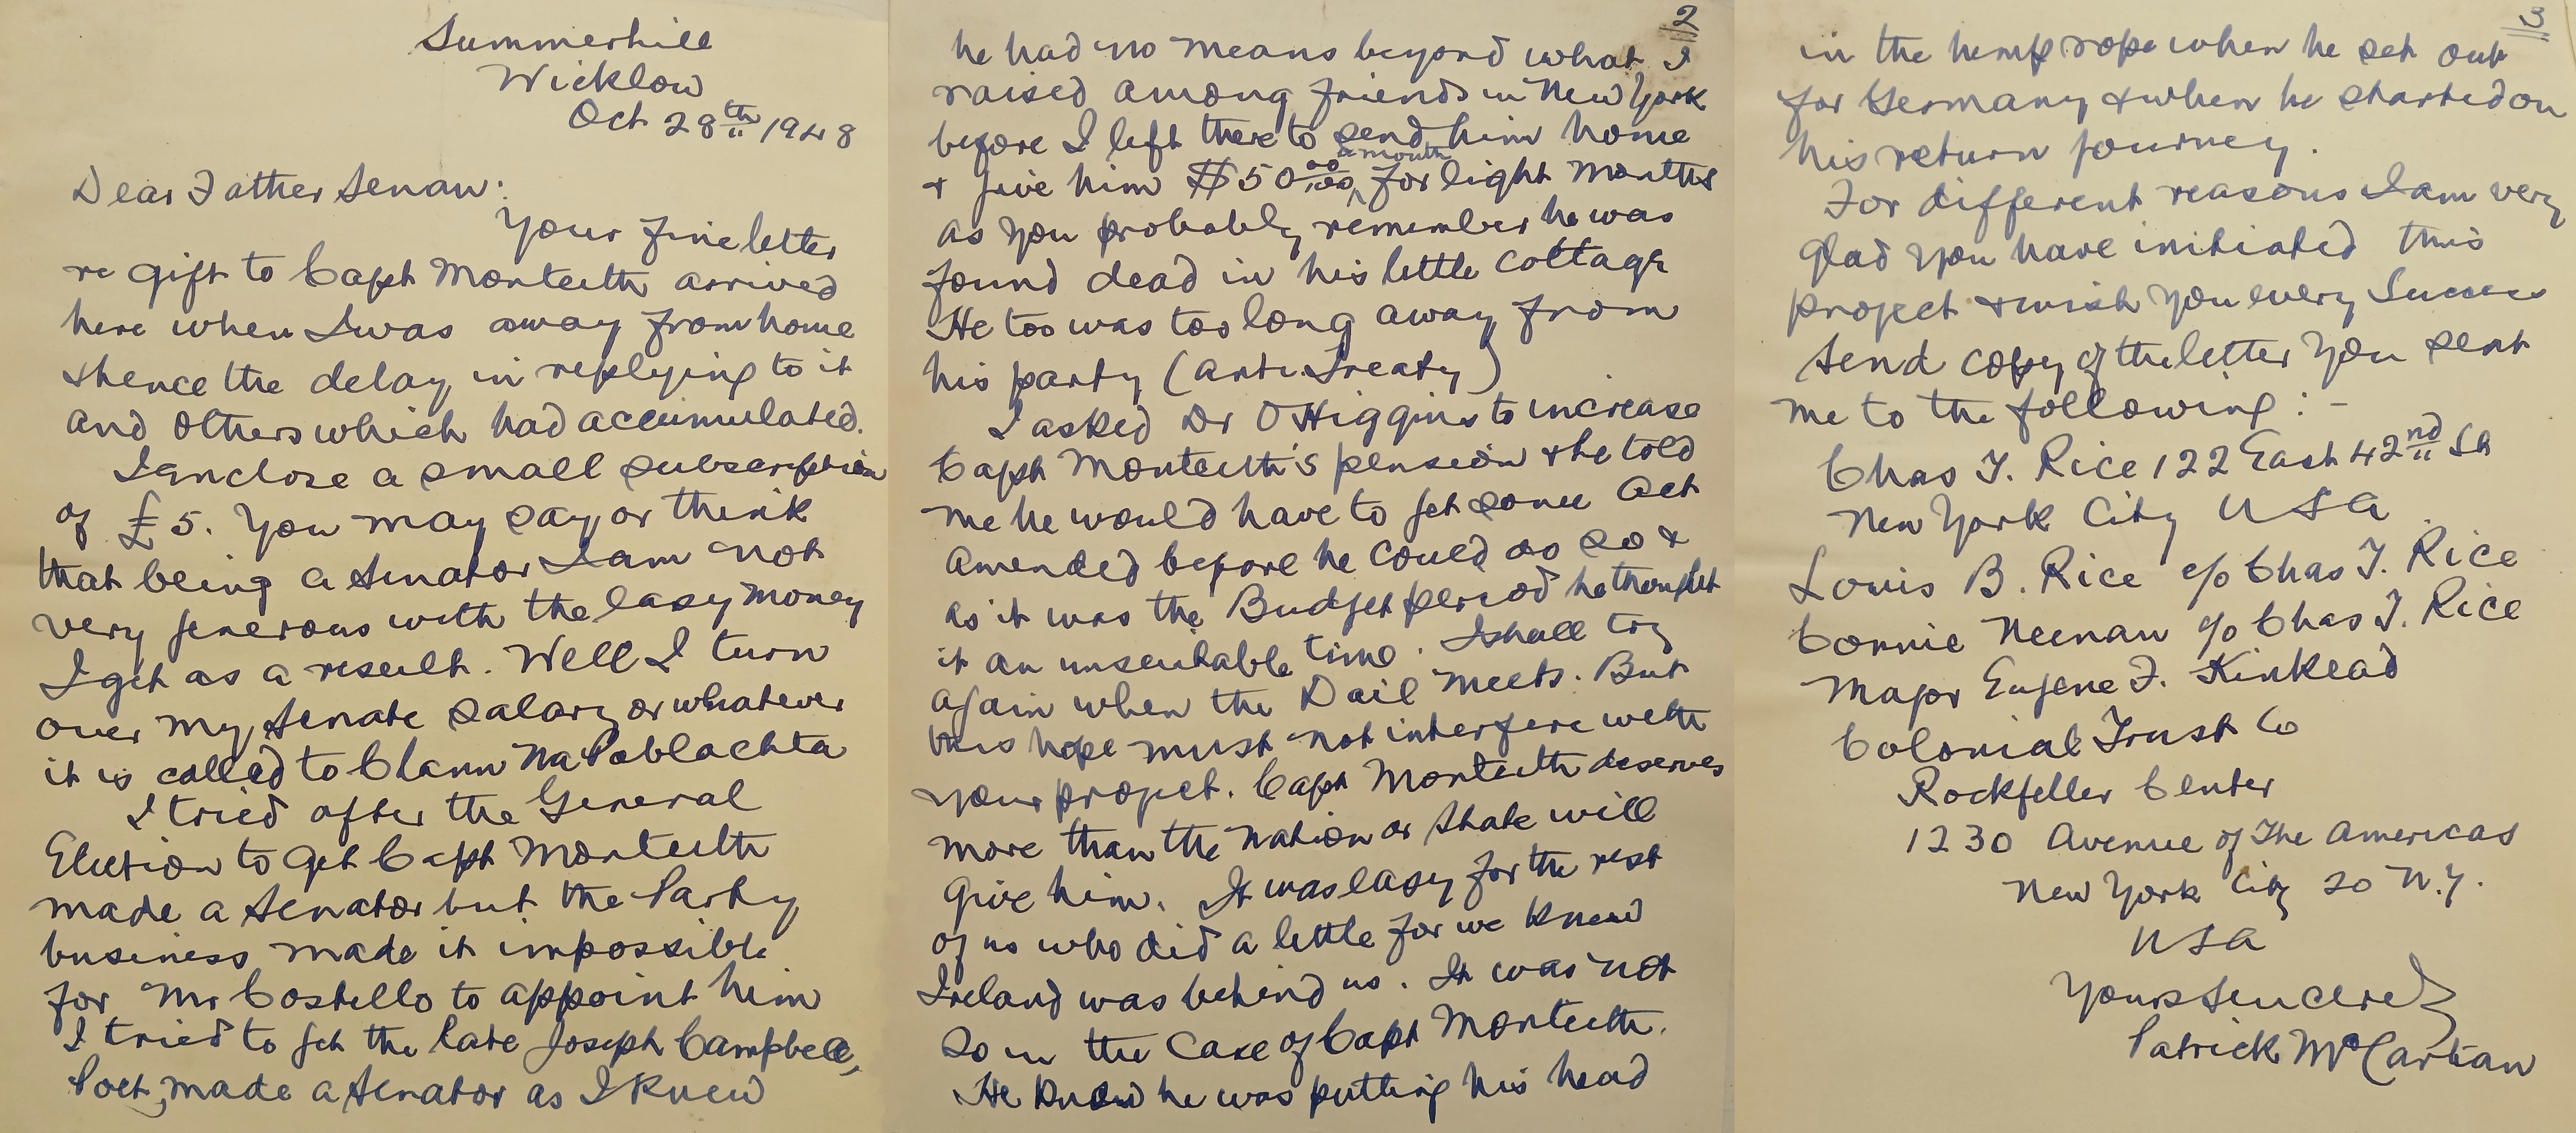 Summerhill
Wicklow
Oct 28th 1948
Dear Father Senan:
Your fine letter
re gift to Capt Monteith arrived
here when I was away from home
& hence the delay in replying to it
and others which had accumulated.
I enclose a small subscription
of £5. You may say or think
that being a Senator I am not
very generous with the easy money
I get as a result. Well I turn
over my Senate salary or whatever
it is called to Clann Na Poblachta
I tried after the General
Election to get Capt Monteith
made a Senator but the Party
business made it impossible
for Mr Costello to appoint him
I tried to get the late Joseph Campbell,
Poet, made a Senator as I knew
2
he had no means beyond what I
raised among friends in New York
before I left there to send him home
a month
& give him $50.00 for eight months
as you probably remember he was
found dead in his little cottage
He too was too long away from
his party (anti Treaty)
I asked Dr O'Higgins to increase
Capt Monteith's pension & he told
me he would have to get some Act
amended before he could do so &
as it was the Budget period he thought
it an unsuitable time. I shall try
again when the Dail meets. But
this hope must not interfere with
your project. Capt Monteith deserves
more than the Nation or State will
give him. It was easy for the rest
of us who did a little for we knew
Ireland was behind us. It was not
so in the case of Capt Monteith.
He knew he was putting his head
3
in the hemp rope when he set out
for Germany & when he started on
his return journey.
For different reasons I am very
glad you have initiated this
project & wish you every success
Send copy of the letter you sent
me to the following:-
Chas T. Rice 122 East 42nd St
New York City USA
Louis B. Rice c/o Chas T. Rice
Connie Neenan c/o Chas T. Rice
Major Eugene F. Kinkead
Colonial Trust Co
Rockfeller Center
1230 Avenue of The Americas
New York City 20 N.Y.
USA
Yours Sincerely
Patrick McCartan